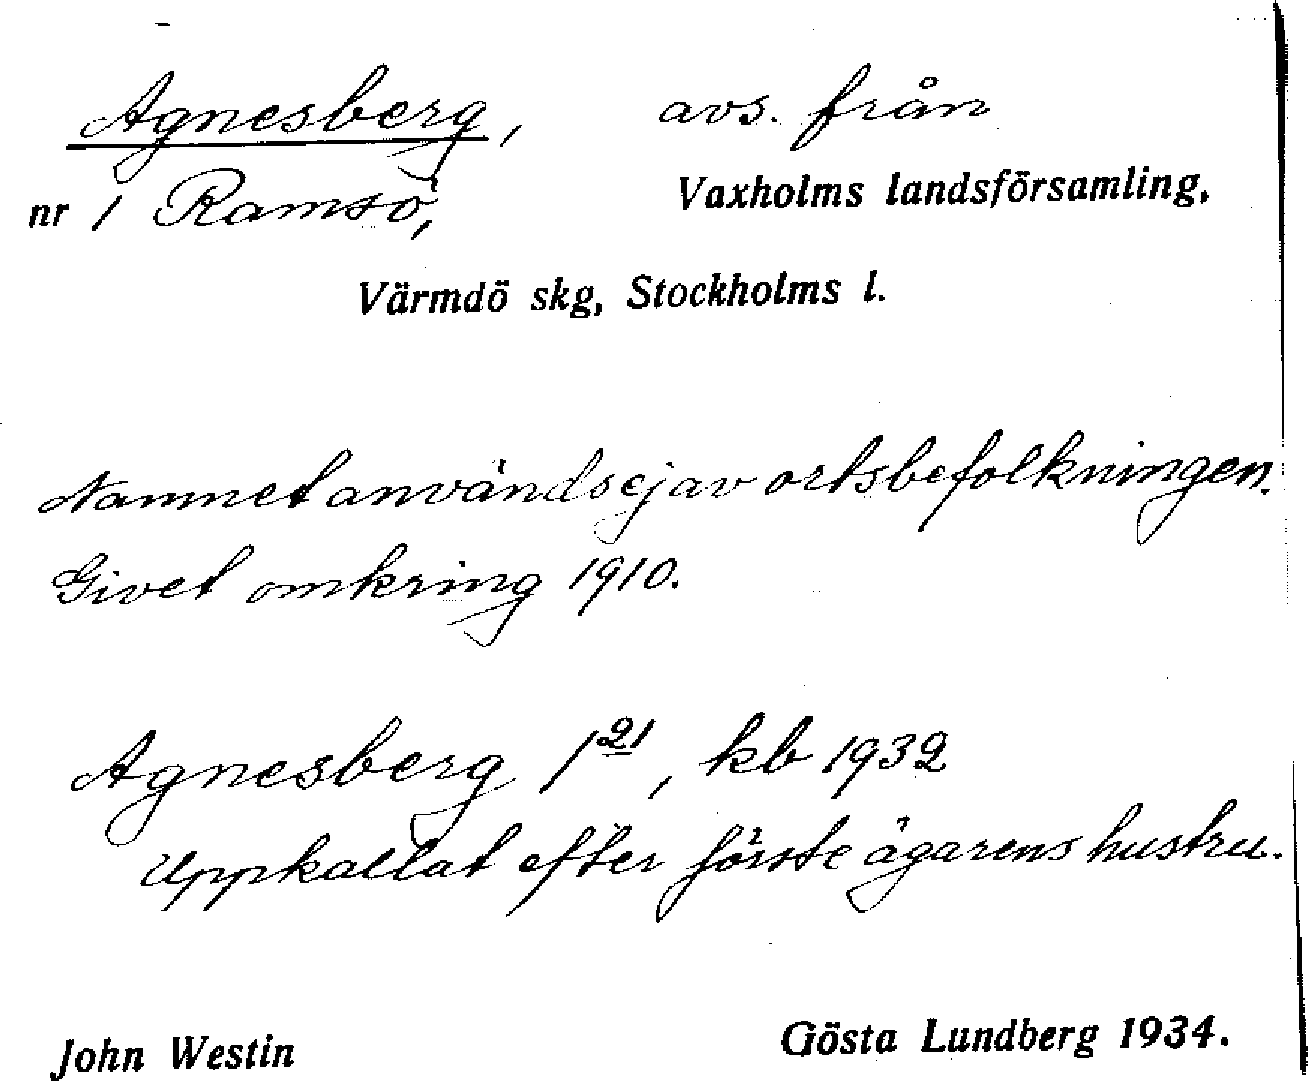 Agnesberg, avs. från
nr 1 Ramsö, Vaxholms landsförsamling,
Värmdö skg, Stockholms l.
Namnet användes ej av ortsbefolkningen.
Givet omkring 1910.
Agnesberg 1²¹, kb 1932
Uppkallat efter förste ägarens hustru.
John Westin Gösta Lundberg 1934.